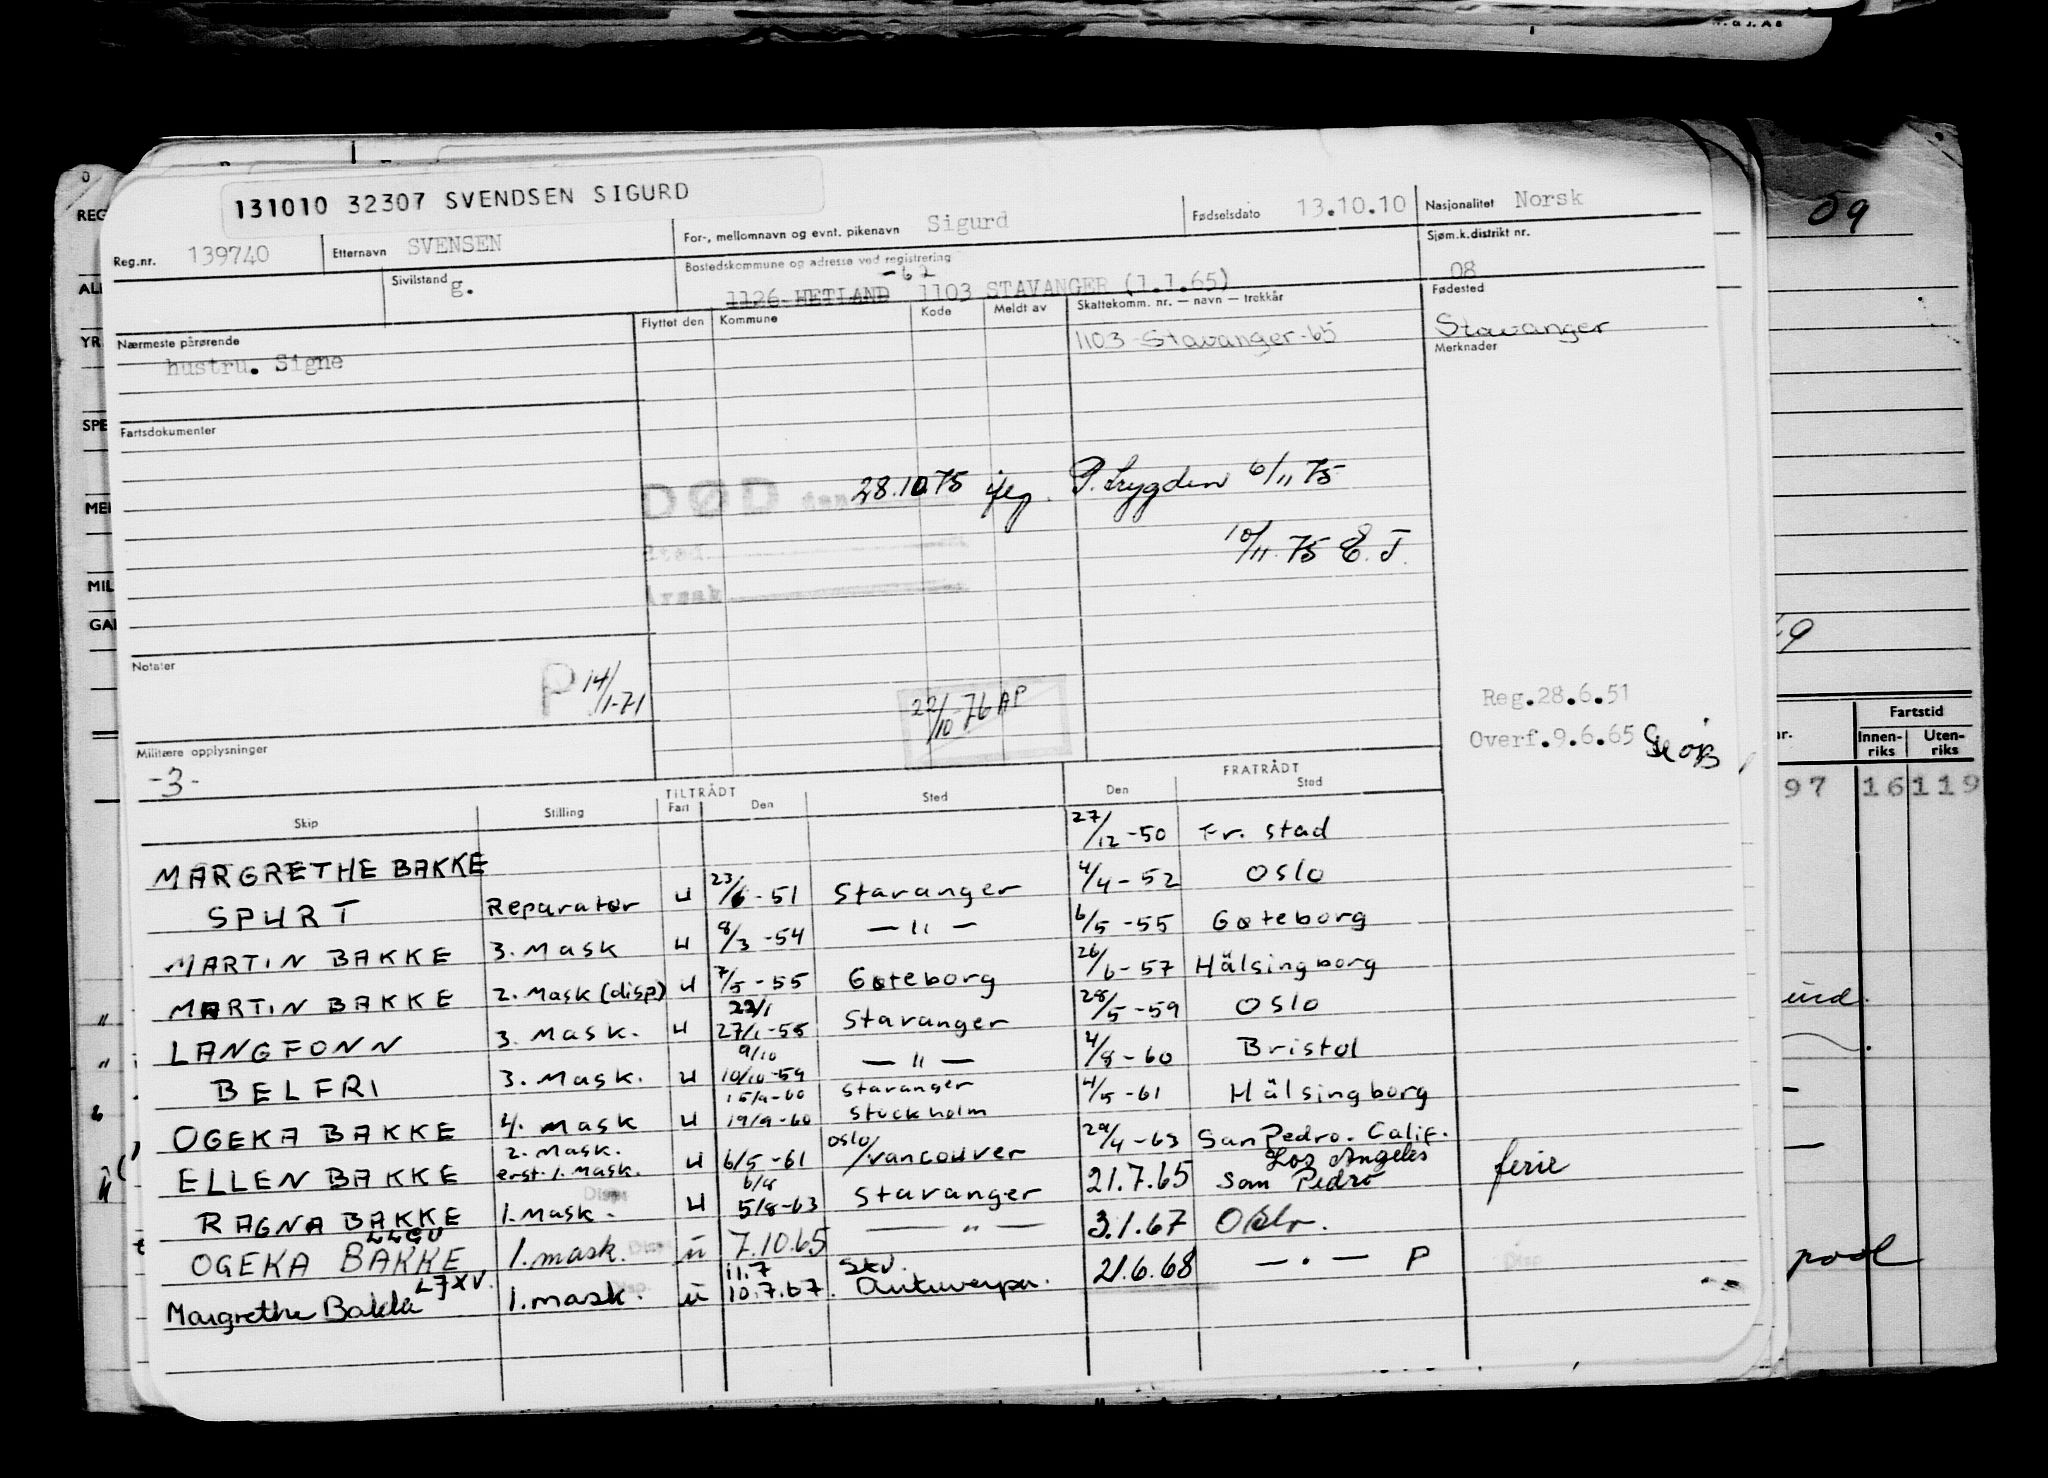 131010 32307 SVENDSEN SIGURD
Reg.nr. 139740 Etternavn SVENSEN For-, mellomnavn og evnt. pikenavn Sigurd Fødselsdato 13.10.10 Nasjonalitet Norsk
Sivilstand g. Bostedskommune og adresse ved registrering Sjøm.k.distrikt nr.
-62
1126 HETLAND 1103 STAVANGER (1.1.65) 08
Nærmeste pårørende Flyttet den Kommune Kode Meldt av Skattekomm. nr. — navn — trekkår Fødested
hustru. Signe 1103-Stavanger-65 Stavanger
Merknader
Fartsdokumenter
DØD den 28.10.75 P. Trygden 6/11 75
Sted
Årsak
10/11.75 E. J.
Notater
P 14/1-71
22/10-76 AP
Reg.28.6.51
Overf.9.6.65
Militære opplysninger
-3-
TILTRÅDT FRATRÅDT
Skip Stilling Fart Den Sted Den Sted
MARGRETHE BAKKE 27/12-50 Fr. stad
SPURT Reparatør U 23/6-51 Stavanger 4/4-52 Oslo
MARTIN BAKKE 3. Mask U 8/3-54 — " — 6/5-55 Gøteborg
MARTIN BAKKE 2. Mask (disp) U 7/5-55 Gøteborg 26/6-57 Hälsingborg
22/1
LANGFONN 3. Mask. U 27/1-58 Stavanger 28/5-59 Oslo
9/10
BELFRI 3. Mask. U 10/10-59 — " — 4/8-60 Bristol
15/9-60 Stavanger
OGEKA BAKKE 4. Mask U 19/9-60 Stockholm 4/5-61 Hälsingborg
2. Mask.
ELLEN BAKKE erst. 1. Mask. U 6/5-61 Oslo/Vancouver 29/4-63 San Pedro. Calif.
6/8 Los Angeles
RAGNA BAKKE 1. Mask. U 5/8-63 Stavanger 21.7.65 San Pedro ferie
LLGU
OGEKA BAKKE 1. mask. u 7.10.65 — " — 3.1.67 Oslo.
LJXV. 11.7 Skv.
Margrethe Bakke 1. mask. u 10.7.67. Antwerpen. 21.6.68 — " — P
REG
YR
SPE
MIL
59
Fartstid
Innen-riks Uten-riks
97 16 119
pool